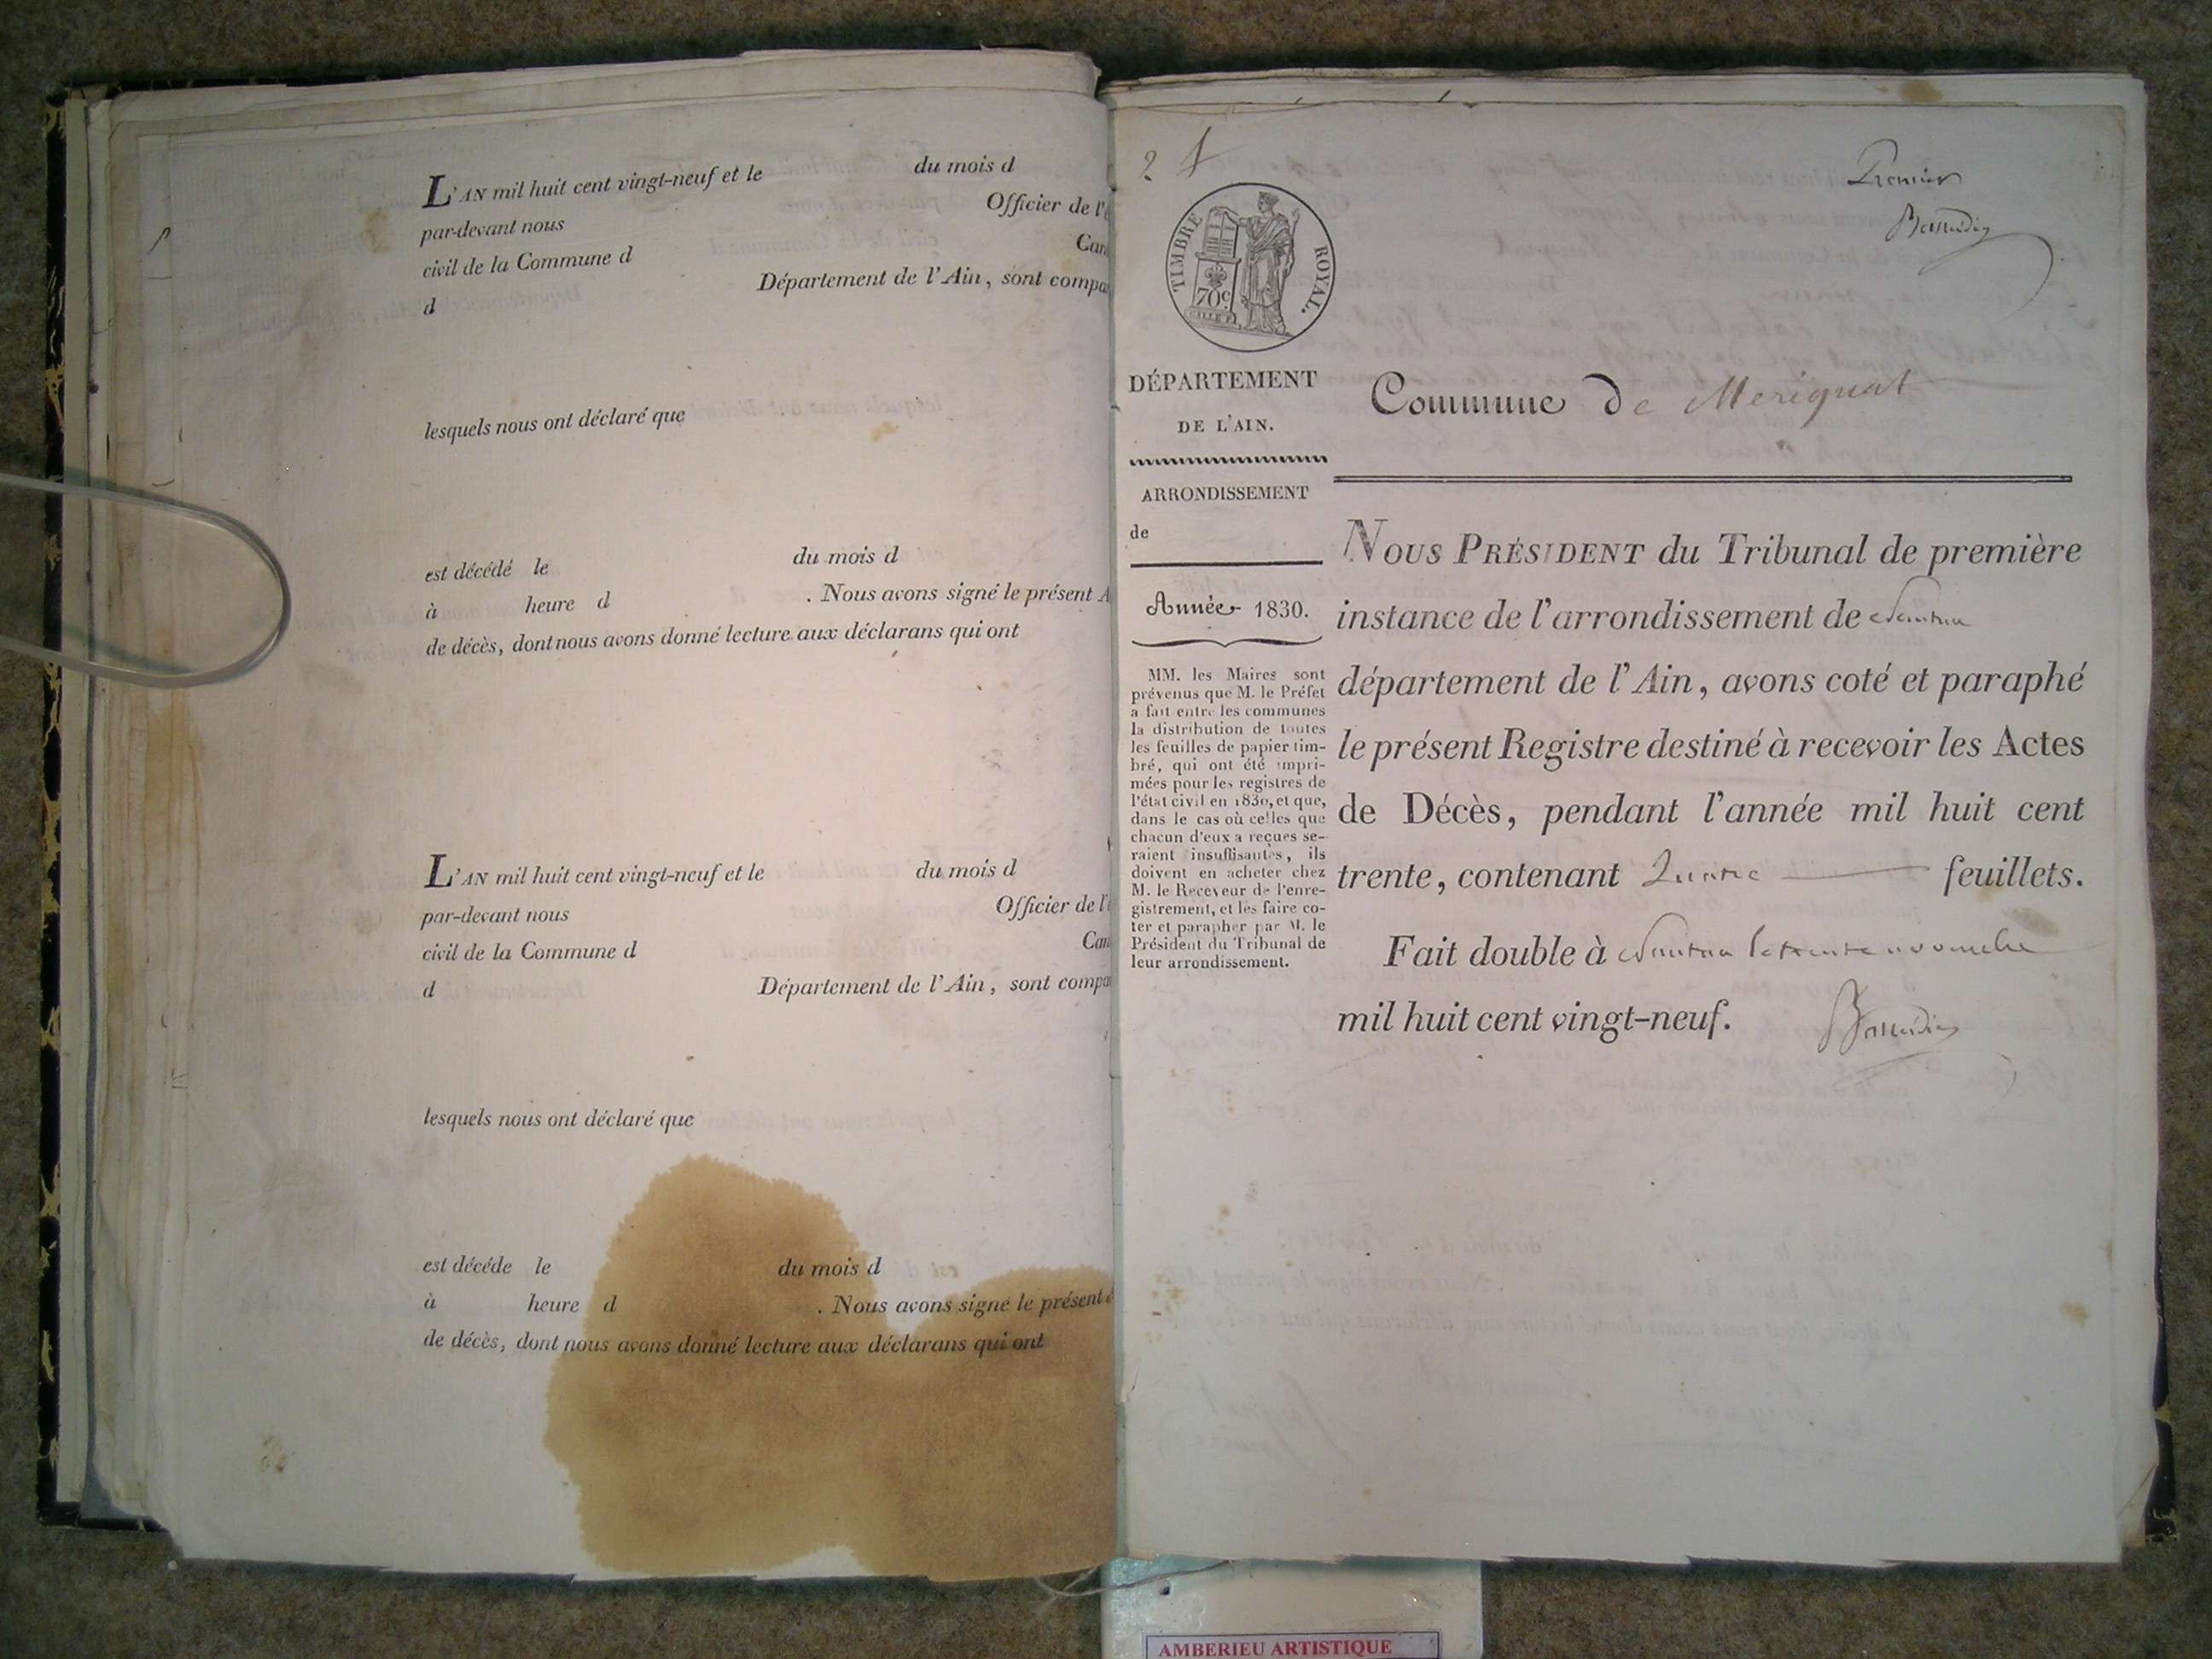 L'AN mil huit cent vingt-neuf et le du mois d
par-devant nous Officier de l'é
civil de la Commune d Can
d Département de l'Ain, sont compa
lesquels nous ont déclaré que
est décédé le du mois d
à heure d . Nous avons signé le présent A
de décès, dont nous avons donné lecture aux déclarans qui ont
L'AN mil huit cent vingt-neuf et le du mois d
par-devant nous Officier de l'é
civil de la Commune d Can
d Département de l'Ain, sont compa
lesquels nous ont déclaré que
est décéde le du mois d
à heure d . Nous avons signé le présent
de décès, dont nous avons donné lecture aux déclarans qui ont
Premier
TIMBRE ROYAL.
70c
DÉPARTEMENT
DE L'AIN.
ARRONDISSEMENT
de
Année 1830.
MM. les Maires sont
prévenus que M. le Préfet
a fait entre les communes
la distribution de toutes
les feuilles de papier tim-
bré, qui ont été impri-
mées pour les registres de
l'état civil en 1830, et que,
dans le cas où celles que
chacun d'eux a reçues se-
raient insuffisantes, ils
doivent en acheter chez
M. le Receveur de l'enre-
gistrement, et les faire co-
ter et parapher par M. le
Président du Tribunal de
leur arrondissement.
Commune de Merignat
NOUS PRÉSIDENT du Tribunal de première
instance de l'arrondissement de Nantua
département de l'Ain, avons coté et paraphé
le présent Registre destiné à recevoir les Actes
de Décès, pendant l'année mil huit cent
trente, contenant quatre feuillets.
Fait double à Nantua le trente novembre
mil huit cent vingt-neuf.
AMBERIEU ARTISTIQUE